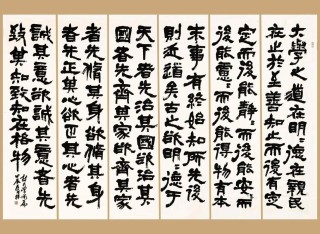 大學之道在明〻德在親民
在止於至善知止而後有定
定而後能靜〻而後能安〻而
後能慮〻而後能得物有本
末事有終始知所先後
則近道矣古之欲明〻德于
天下者先治其國欲治其
國者先齊其家欲齊其家
者先脩其身欲脩其身
者先正其心欲正其心者先
誠其意欲誠其意者先
致其知致知在格物